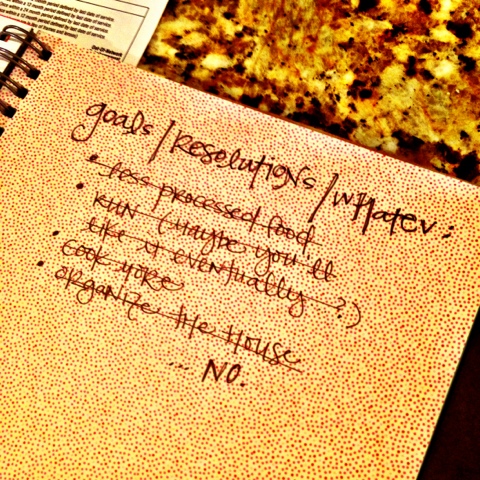 goals/Resolutions/whatev:
• less processed food
• RUN (maybe you'll
like it eventually?)
• cook more
• organize the house
... NO.